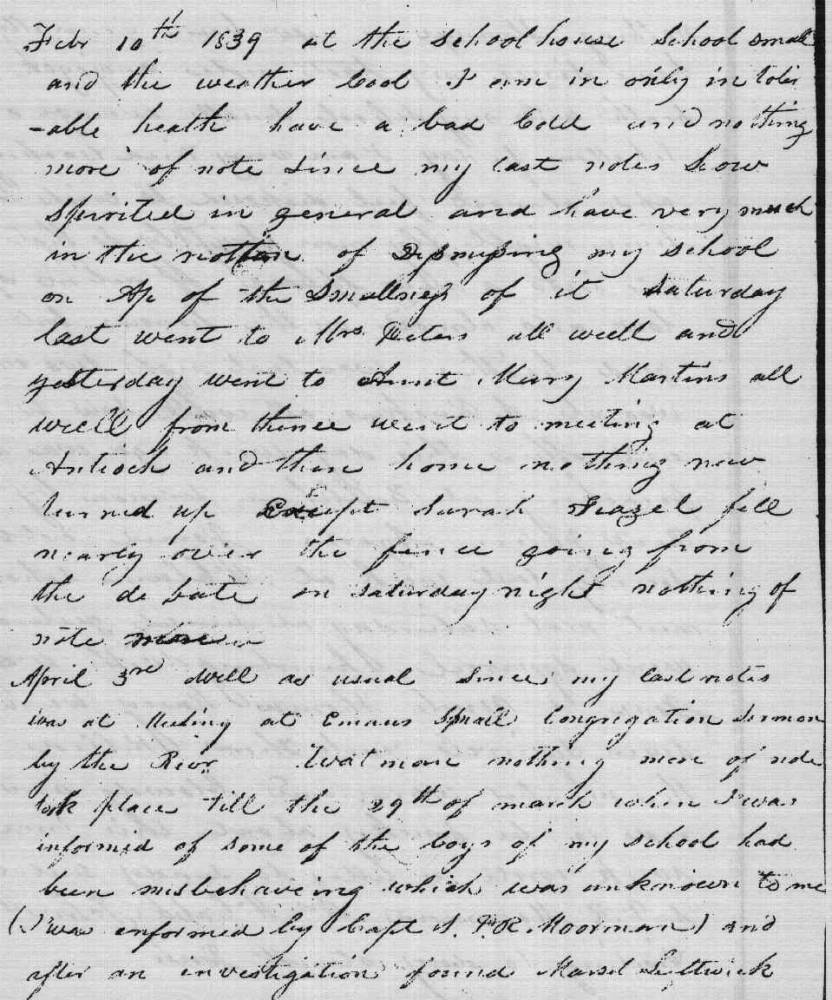 Febr 10th 1839 at the school house school small
and the weather Cool I am in only in toler
-able health have a bad Cold and nothing
more of note since my last notes Low
Spirited in general and have very much
in the notion of Dismissing my school
on Ap of the Smallness of it saturday
last went to Mrs. Peters all well and
yesterday went to Aunt Mary Martins all
well from thence went to meeting at
Antioch and then home nothing new
turned up Except Sarah Feazel fell
nearly over the fence going from
the de bate on saturday night nothing of
note more
April 3rd Well as usual since my last notes
was at Meeting at Emaus Small Congregation Sermon
by the Revr Watman nothing more of note
took place till the 29th of march when I was
informed of some of the boys of my school had
been misbehaveing which was unknown to me
(I was enformed by Capt S. P. R. Moorman) and
after an investigation found Leftwick